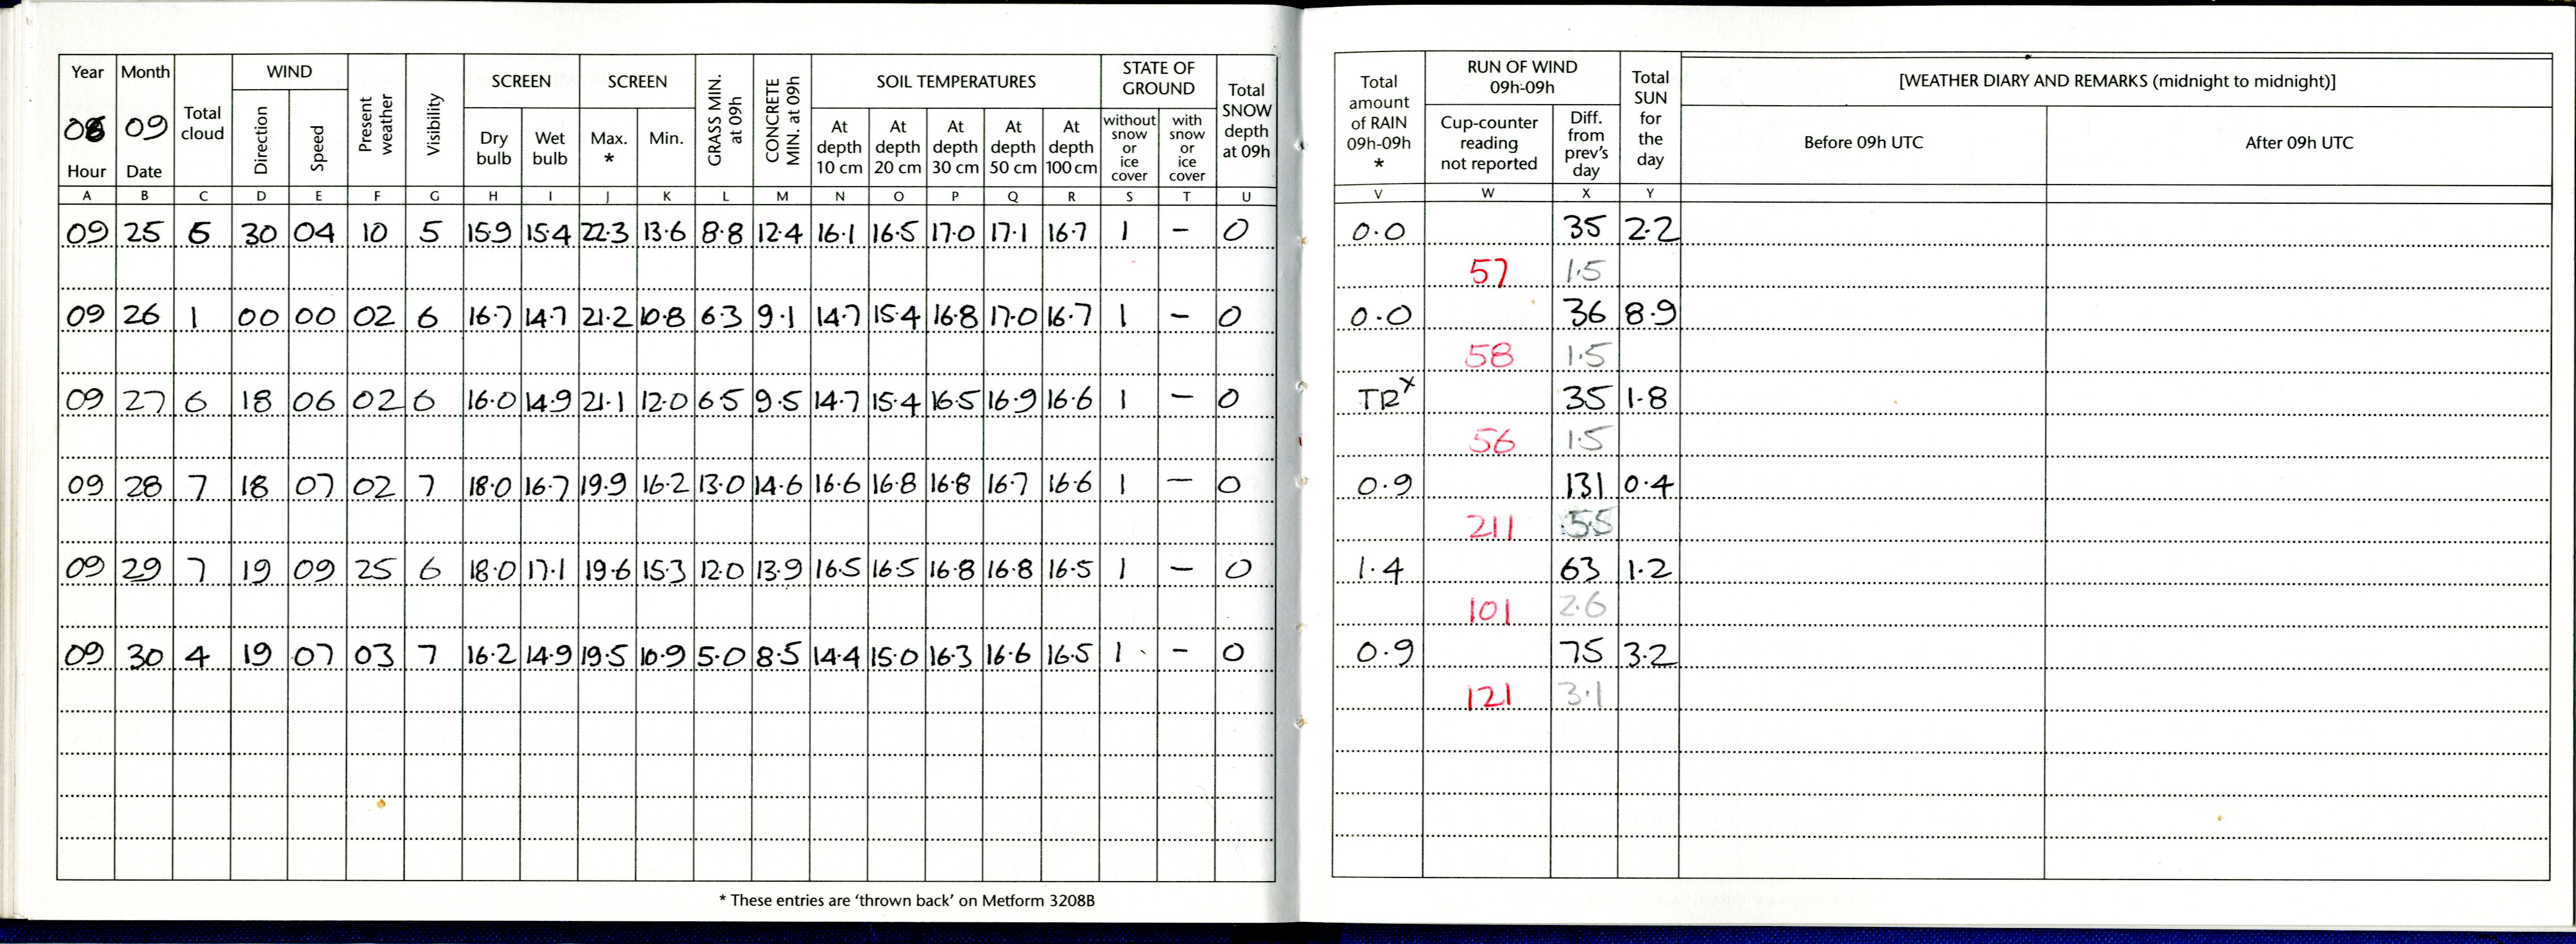 Year Month Total cloud WIND Direction Speed Present weather Visibility SCREEN Dry bulb Wet bulb SCREEN Max. * Min. GRASS MIN. at 09h CONCRETE MIN. at 09h SOIL TEMPERATURES At depth 10 cm At depth 20 cm At depth 30 cm At depth 50 cm At depth 100 cm STATE OF GROUND without snow or ice cover with snow or ice cover Total SNOW depth at 09h
08 09
Hour Date
A B C D E F G H I J K L M N O P Q R S T U
09 25 6 30 04 10 5 15.9 15.4 22.3 13.6 8.8 12.4 16.1 16.5 17.0 17.1 16.7 1 – 0
09 26 1 00 00 02 6 16.7 14.7 21.2 10.8 6.3 9.1 14.7 15.4 16.8 17.0 16.7 1 – 0
09 27 6 18 06 02 6 16.0 14.9 21.1 12.0 6.5 9.5 14.7 15.4 16.5 16.9 16.6 1 – 0
09 28 7 18 07 02 7 18.0 16.7 19.9 16.2 13.0 14.6 16.6 16.8 16.8 16.7 16.6 1 – 0
09 29 7 19 09 25 6 18.0 17.1 19.6 15.3 12.0 13.9 16.5 16.5 16.8 16.8 16.5 1 – 0
09 30 4 19 07 03 7 16.2 14.9 19.5 10.9 5.0 8.5 14.4 15.0 16.3 16.6 16.5 1 – 0
* These entries are 'thrown back' on Metform 3208B
Total amount of RAIN 09h-09h * RUN OF WIND 09h-09h Cup-counter reading not reported Diff. from prev's day Total SUN for the day [WEATHER DIARY AND REMARKS (midnight to midnight)]
Before 09h UTC After 09h UTC
V W X Y
0.0 35 2.2
57 1.5
0.0 36 8.9
58 1.5
TR x 35 1.8
56 1.5
0.9 131 0.4
211 5.5
1.4 63 1.2
101 2.6
0.9 75 3.2
121 3.1